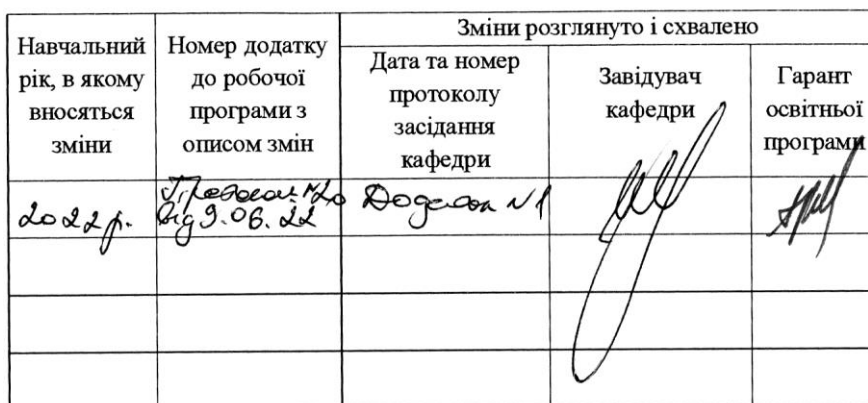 Навчальний
рік, в якому
вносяться
зміни
Номер додатку
до робочої
програми з
описом змін
Зміни розглянуто і схвалено
Дата та номер
протоколу
засідання
кафедри
Завідувач
кафедри
Гарант
освітньої
програми
2022 р.
Протокол №20
від 9.06.22
Додаток №1